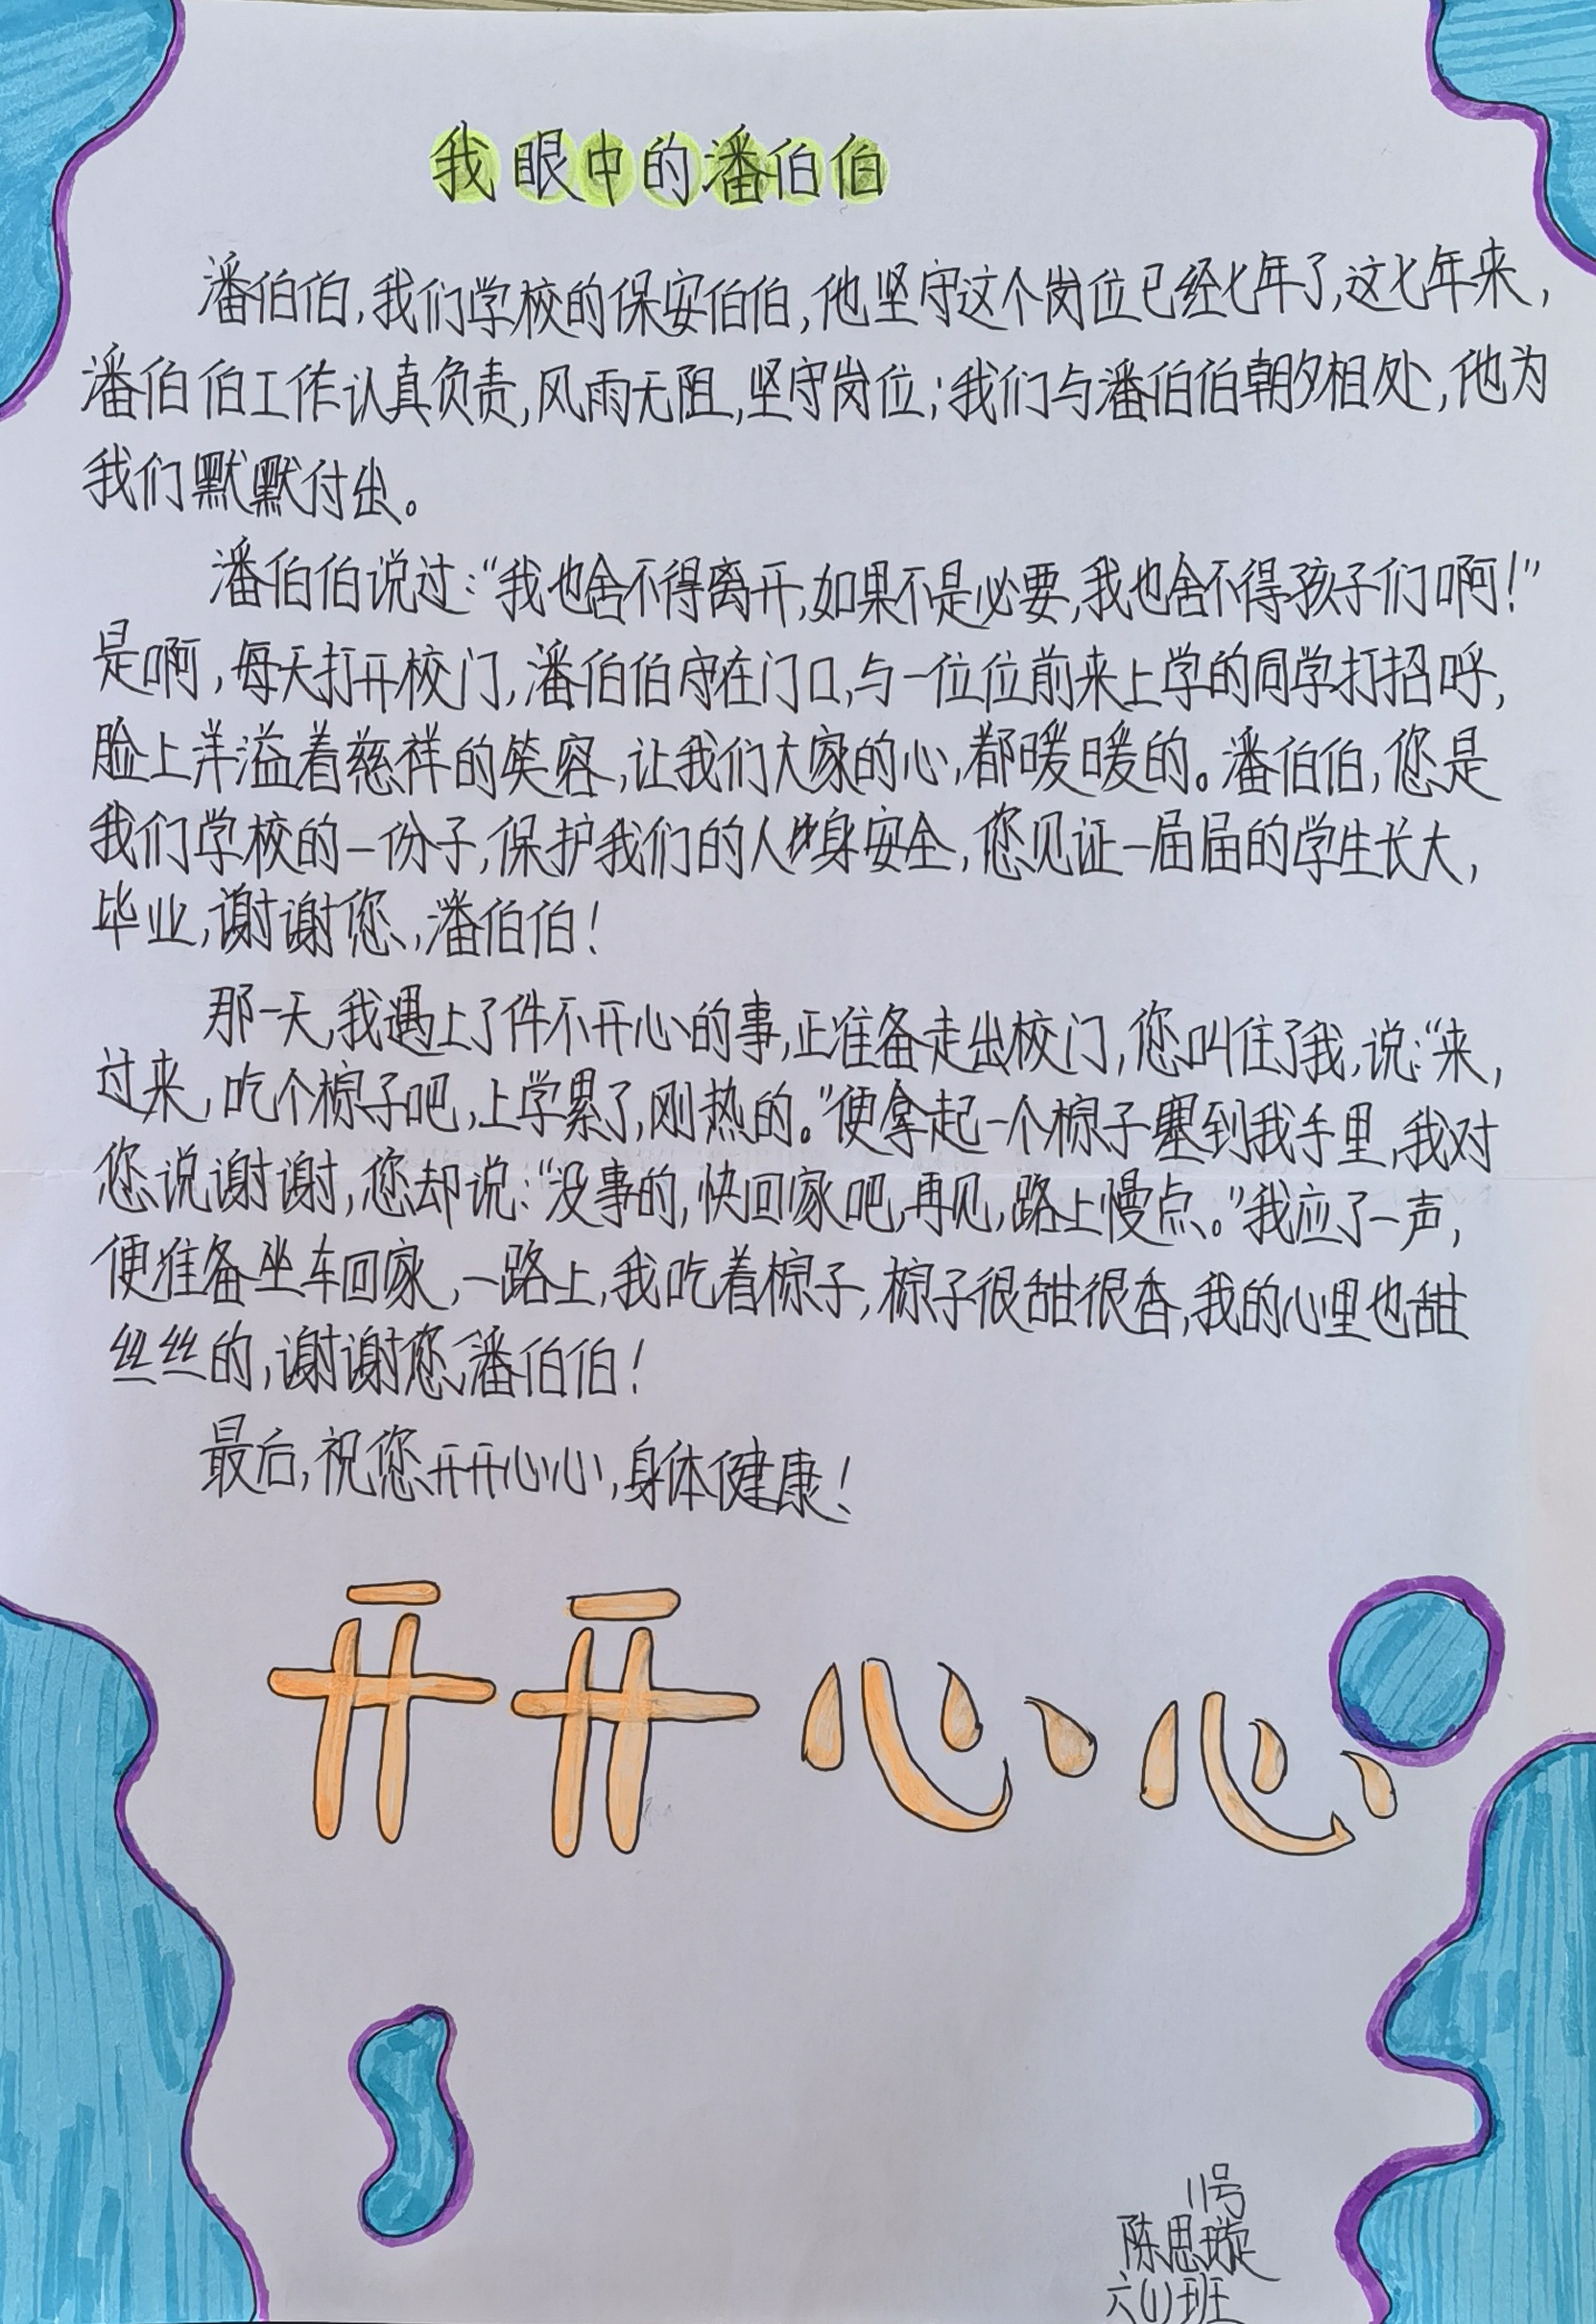 我眼中的潘伯伯
潘伯伯,我们学校的保安伯伯,他坚守这个岗位已经七年了,这七年来,
潘伯伯工作认真负责,风雨无阻,坚守岗位;我们与潘伯伯朝夕相处,他为
我们默默付出。
潘伯伯说过:“我也舍不得离开,如果不是必要,我也舍不得孩子们啊!”
是啊,每天打开校门,潘伯伯守在门口,与一位位前来上学的同学打招呼,
脸上洋溢着慈祥的笑容,让我们大家的心,都暖暖的。潘伯伯,您是
我们学校的一份子,保护我们的人身安全,您见证一届届的学生长大,
毕业,谢谢您,潘伯伯!
那一天,我遇上了件不开心的事,正准备走出校门,您叫住了我,说:“来,
过来,吃个粽子吧,上学累了,刚热的。”便拿起一个粽子塞到我手里,我对
您说谢谢,您却说:“没事的,快回家吧,再见,路上慢点。”我应了一声,
便准备坐车回家,一路上,我吃着粽子,粽子很甜很香,我的心里也甜
丝丝的,谢谢您,潘伯伯!
最后,祝您开开心心,身体健康!
开开心心
11号
陈思璇
六(1)班